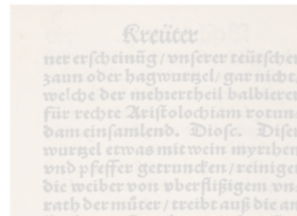 Kreüter
ner erscheinũg / vnserer teütschen
zaun oder hagwurtzel / gar nicht
welche der mehertheil balbierer
für rechte Aristolochiam rotun
dam einsamlend. Diosc. Diser
wurtzel etwas mit wein myrrhen
vnd pfeffer getruncken / reiniget
die weiber von vberflißigem vn
rath der můter / treibt auß die an